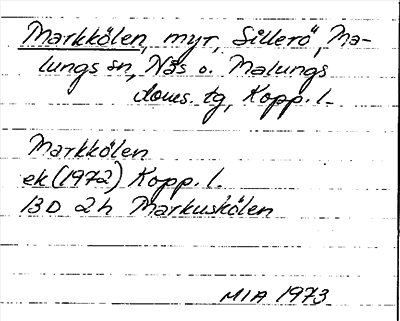 Markkölen, myr, Sillerö, Ma-
lungs sn, Näs o. Malungs
doms. tg, Kopp. l.
Markkölen
ek (1972) Kopp. l.
13D 2h Markuskölen
MIA 1973